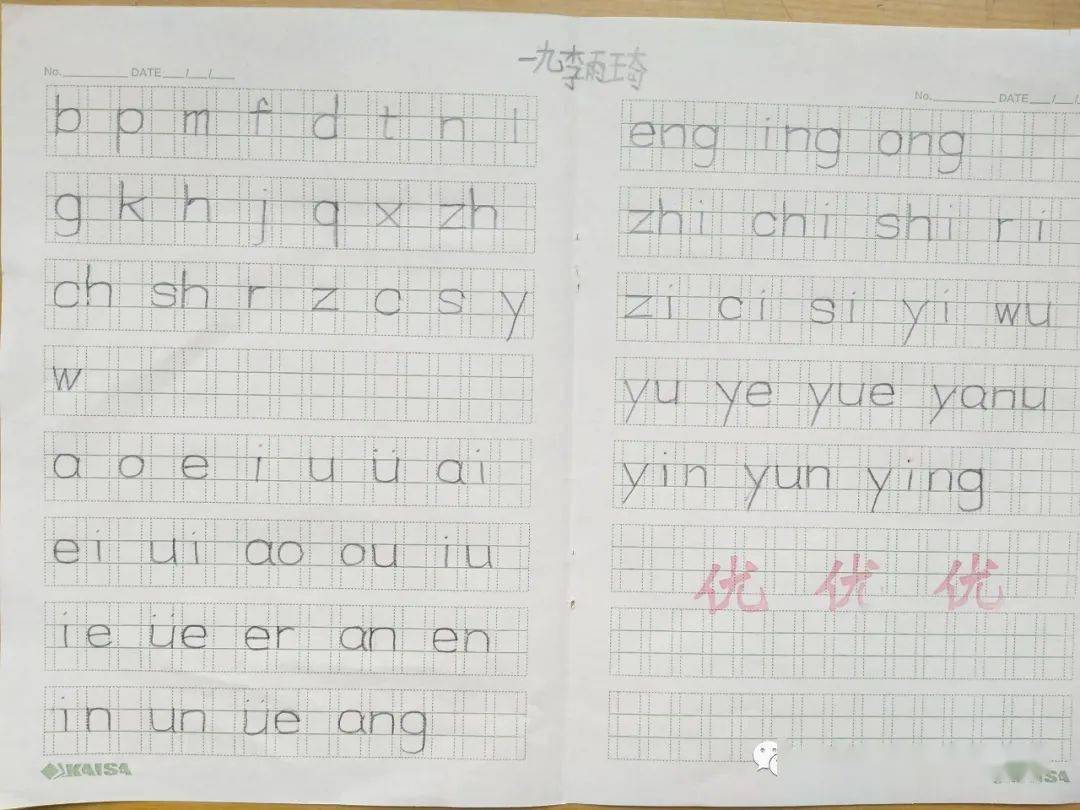 一九李雨琦
No. DATE / /
b p m f d t n l
g k h j q x zh
ch sh r z c s y
w
a o e i u ü ai
ei ui ao ou iu
ie üe er an en
in un üe ang
KAISA
No. DATE / /
eng ing ong
zhi chi shi ri
zi ci si yi wu
yu ye yue yanu
yin yun ying
优 优 优